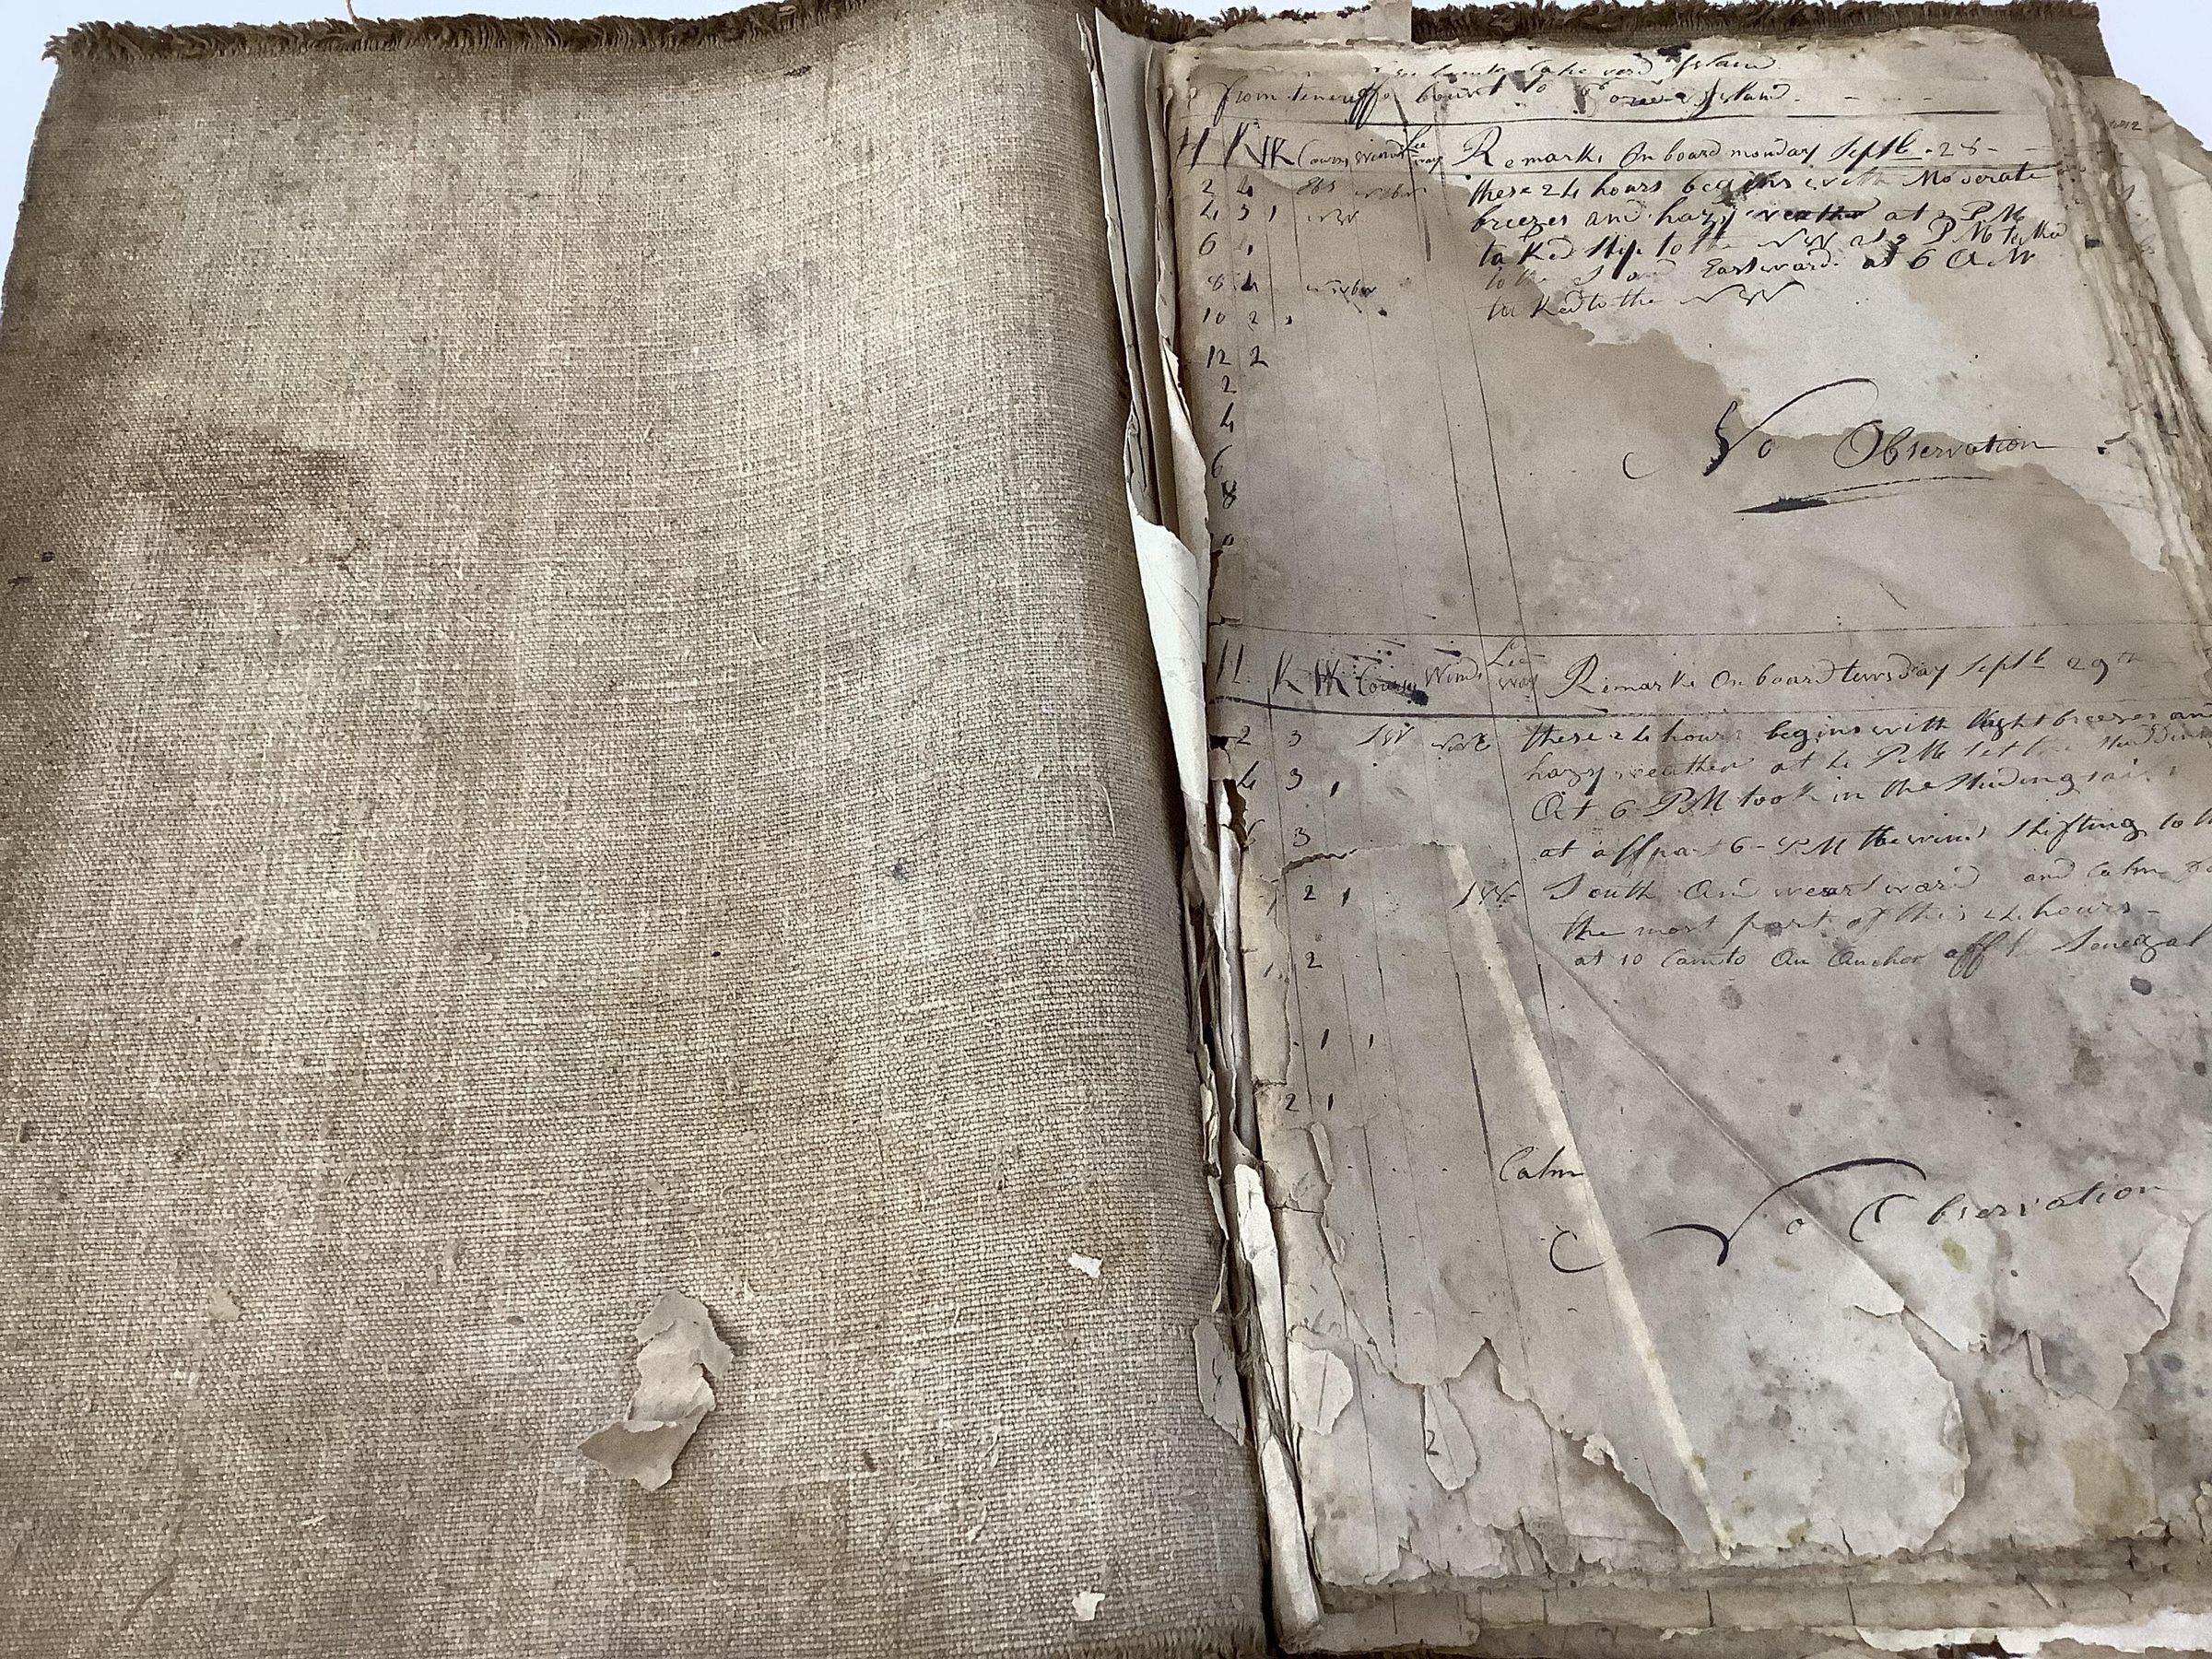 Cape verd Island
from teneriffe bound to Goree Island
H K HK Course Winds Lee way Remarks On board monday Septb 28
2 4 these 24 hours begins with Moderate
4 3 1 WNW breezes and hazy weather at 2 PM
6 4 taked Ship to the NW at 3 PM taked
8 4 to the S and Eastward at 6 A M
10 2 taked to the NW
12 2
2
4
6
8
10
No Observation
H K HK Course Winds Lee way Remarks On board tuesday Septb 29th
2 3 SW these 24 hours begins with light breezes and
4 3 1 hazy weather at 4 PM Set the Studding
At 6 PM took in the Studing sails
6 3 at aff past 6 PM the wind Shifting to the
2 1 South And westward and Calm for
the most part of this 24 hours
2 at 10 Cam to An Anchor aff the Senegal
1 1
2 1
Calm
No Observation
2